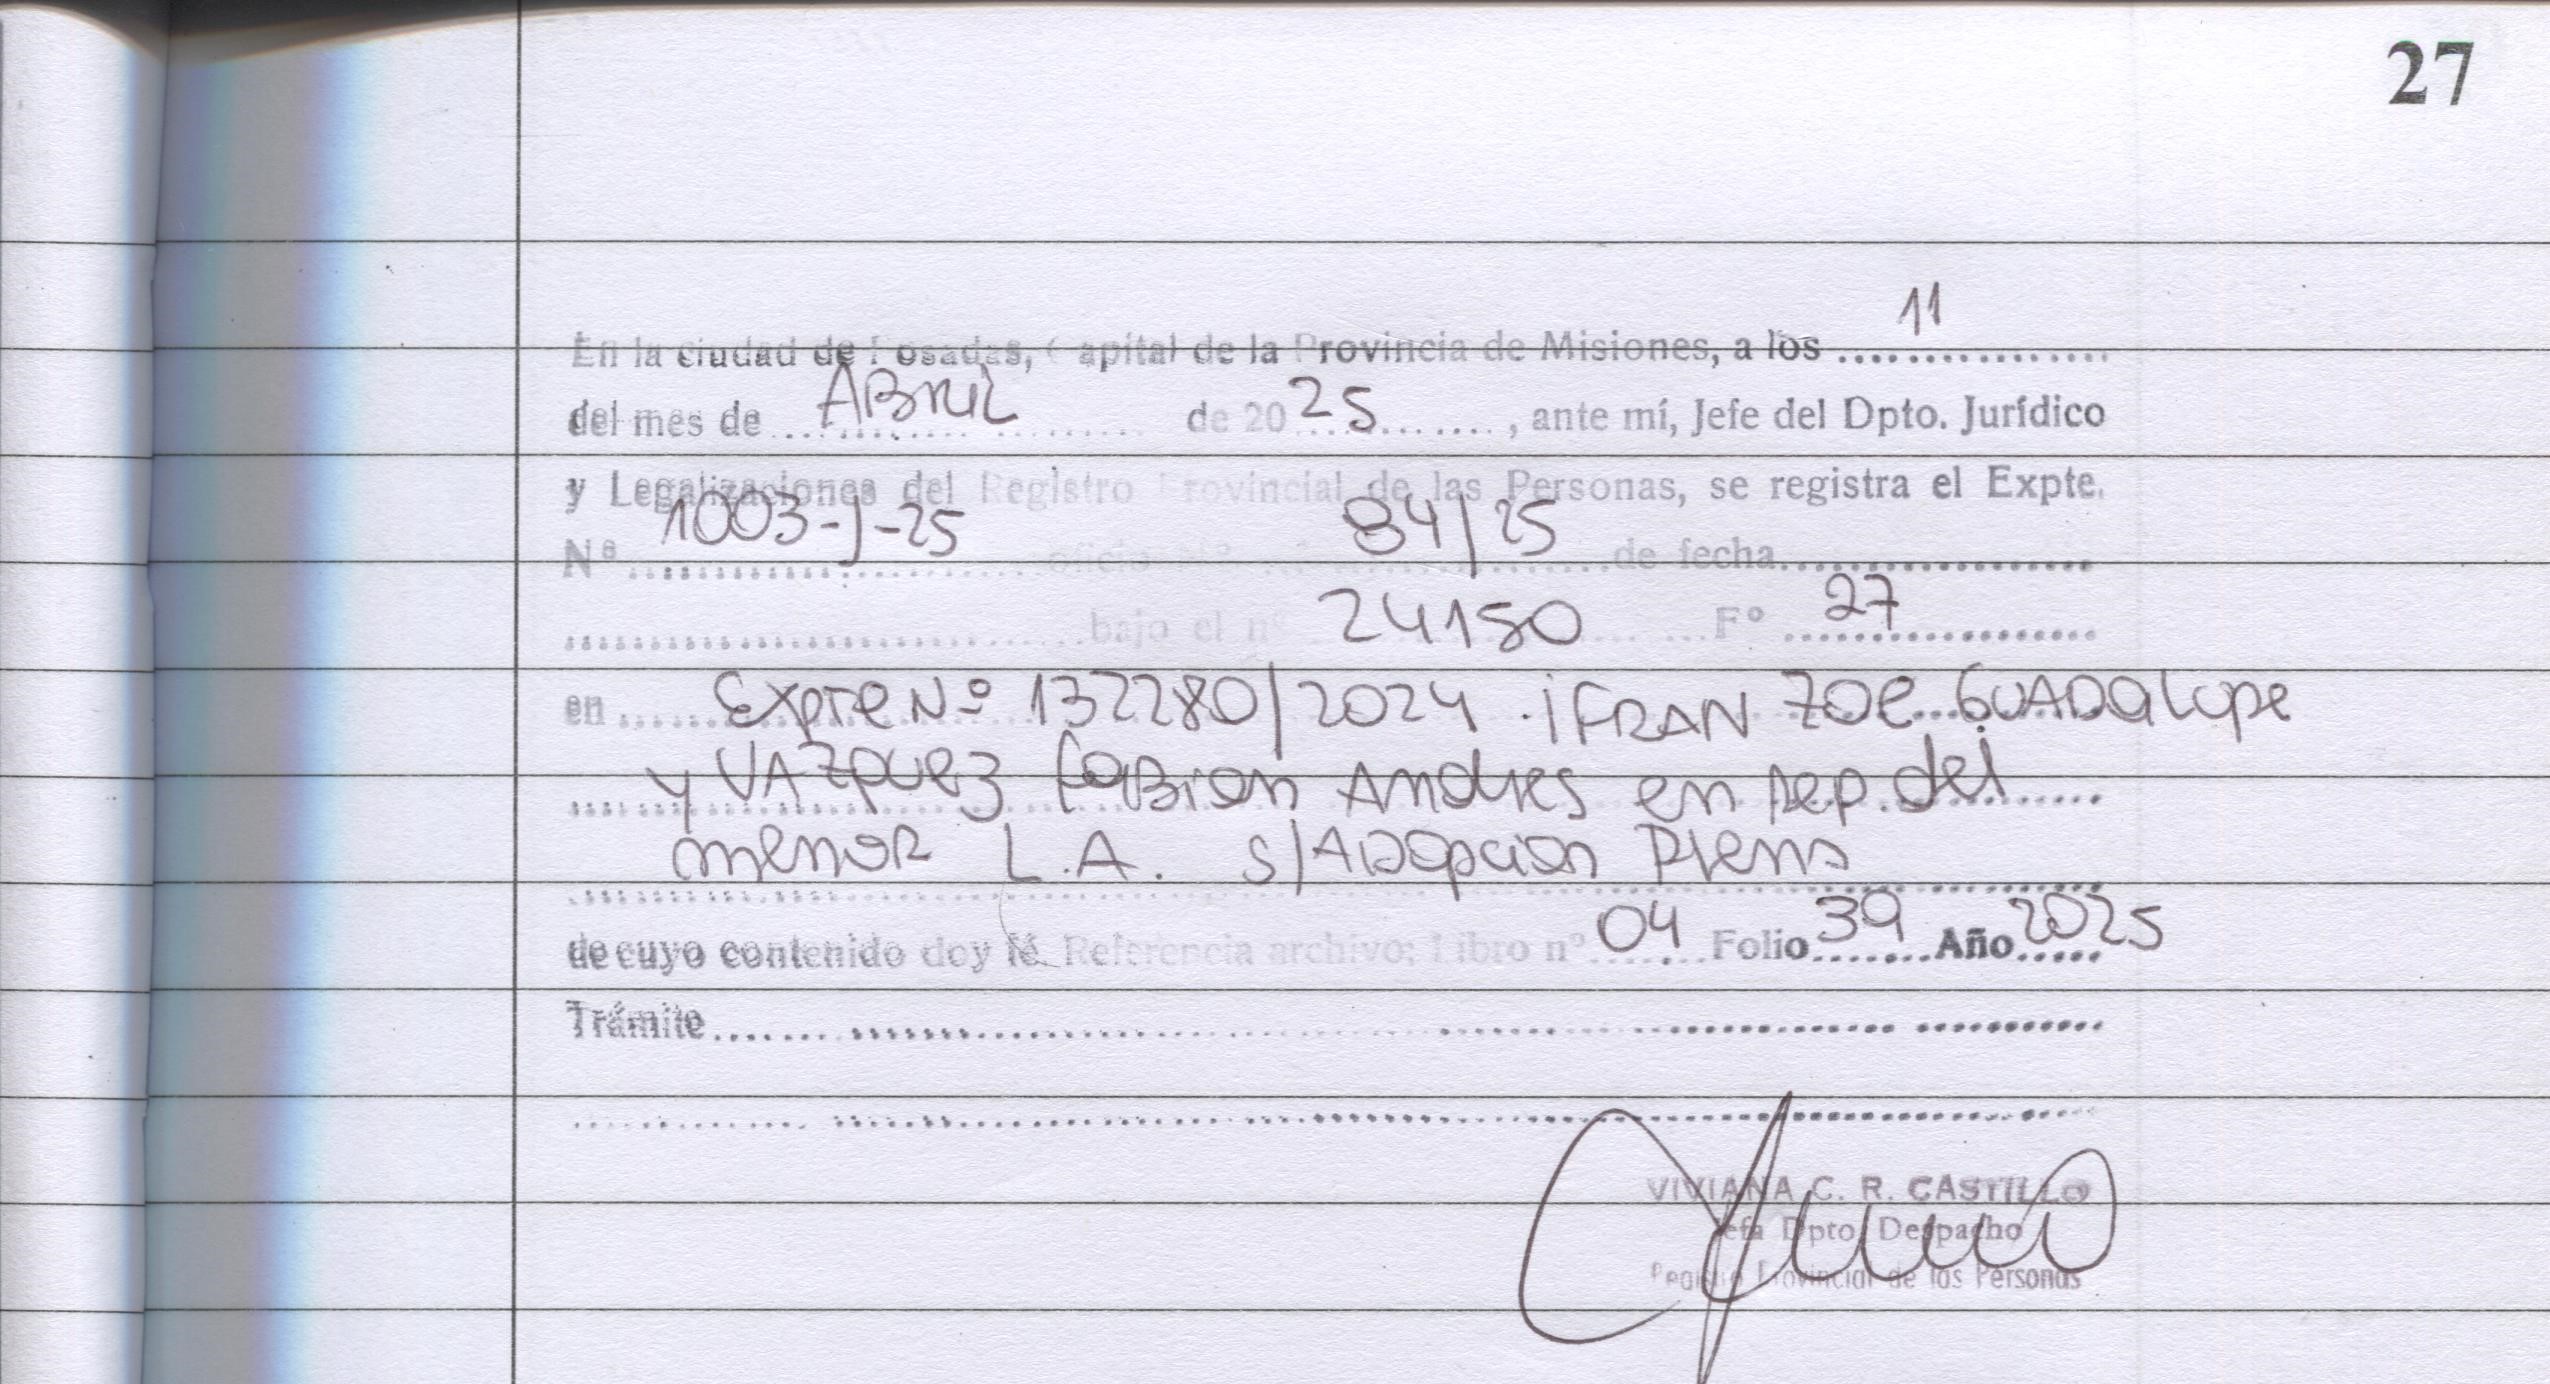 27
En la ciudad de Posadas, Capital de la Provincia de Misiones, a los 11
del mes de ABRIL de 20 25, ante mí, Jefe del Dpto. Jurídico
y Legalizaciones del Registro Provincial de las Personas, se registra el Expte.
Nº 1003-J-25 oficio Nº 84/25 de fecha
bajo el nº 24150 Fº 27
en Expte Nº 132280/2024 iFRAN ZOe GUADalupe
y VAZQUez FaBian Andres en rep. del
menor L.A. s/ADOpcion Plena
de cuyo contenido doy fé. Referencia archivo: Libro nº 04 Folio 39 Año 2025
Trámite
VIVIANA C. R. CASTILLO
Jefa Dpto. Despacho
Registro Provincial de las Personas